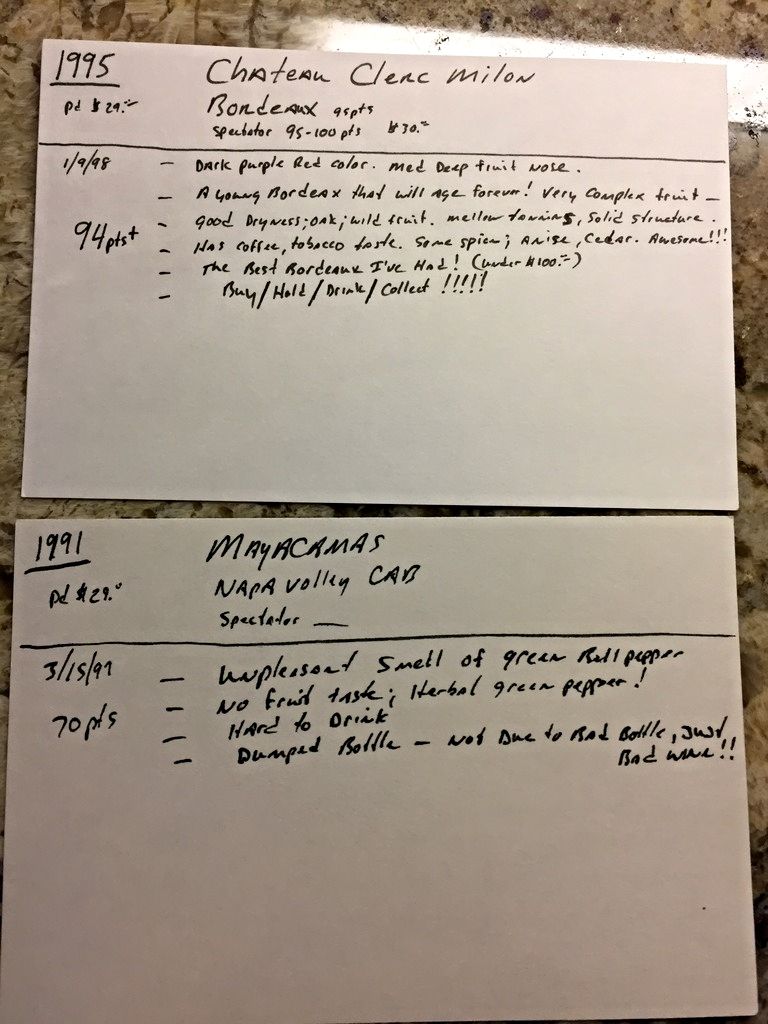 1995 Chateau Clerc Milon
pd $29.- Bordeaux 95pts
Spectator 95-100 pts $30.-
1/9/98 - Dark purple Red color. Med Deep fruit nose.
- A young Bordeax that will age forever! Very Complex fruit -
94pts+ - Good Dryness; oak; wild fruit. mellow tannins, solid structure.
- Has coffee, tobacco taste. Some spice; Anise, Cedar. Awesome!!!
- The Best Bordeaux I've Had! (under $100.-)
- Buy/Hold/Drink/Collect !!!!!
1991 MAYACAMAS
pd $29.- NAPA Valley CAB
Spectator —
3/15/97 - Unpleasant Smell of green Bell pepper
- No fruit taste; Herbal green pepper!
70pts - Hard to Drink
- Dumped Bottle - Not Due to Bad Bottle, just
Bad wine!!